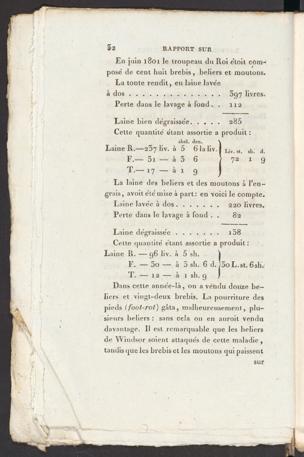 52 RAPPORT SUR
En juin 1801 le troupeau du Roi étoit com-
posé de cent huit brebis, beliers et moutons.
La tonte rendit, en laine lavée
à dos . . . . . . . . . . . . . . 397 livres.
Perte dans le lavage à fond . . 112
Laine bien dégraissée . . . . . 285
Cette quantité étant assortie a produit :
shel. den.
Laine R.—237 liv. à 5 6 la liv. Liv. st. sh. d.
F.— 31 — à 3 6 72 1 9
T.— 17 — à 1 9
La laine des beliers et des moutons à l'en-
grais, avoit été mise à part : en voici le compte.
Laine lavée à dos . . . . . . . 220 livres.
Perte dans le lavage à fond . . 82
Laine dégraissée . . . . . . . 138
Cette quantité étant assortie a produit :
Laine R. — 96 liv. à 5 sh.
F. — 30 — à 3 sh. 6 d. 30 L. st. 6 sh.
T. — 12 — à 1 sh. 9
Dans cette année-là, on a vendu douze be-
liers et vingt-deux brebis. La pourriture des
pieds (foot-rot) gâta, malheureusement, plu-
sieurs beliers : sans cela on en auroit vendu
davantage. Il est remarquable que les beliers
de Windsor soient attaqués de cette maladie,
tandis que les brebis et les moutons qui paissent
sur